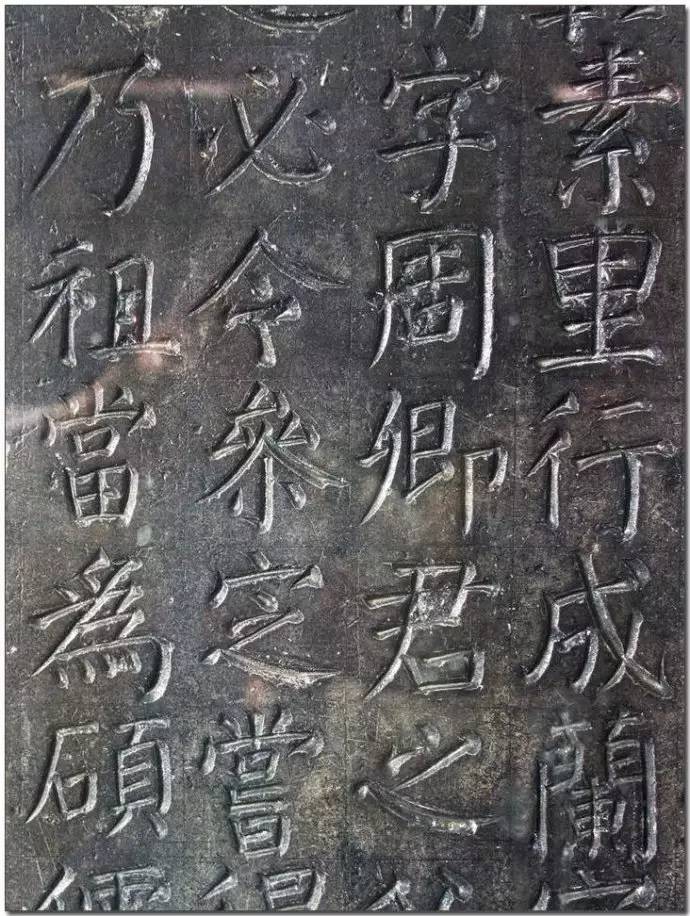 素里行成蘭
字周卿君之
必今參定嘗
乃祖當為碩